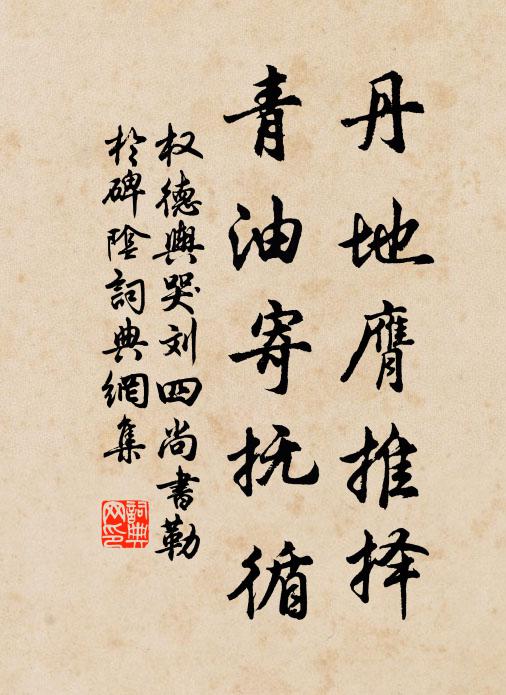 丹地膺推择
青油寄抚循
权德舆哭刘四尚书勒
於碑陰詞典網集
詞典网印